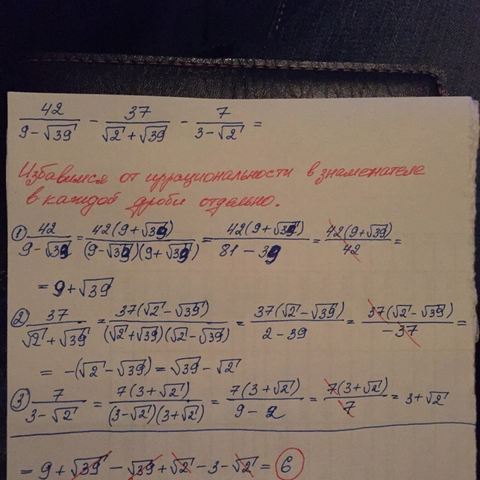 42/(9-√39) - 37/(√2+√39) - 7/(3-√2) =
Избавимся от иррациональности в знаменателе
в каждой дроби отдельно.
① 42/(9-√39) = 42(9+√39)/((9-√39)(9+√39)) = 42(9+√39)/(81-39) = 42(9+√39)/42 =
= 9+√39
② 37/(√2+√39) = 37(√2-√39)/((√2+√39)(√2-√39)) = 37(√2-√39)/(2-39) = 37(√2-√39)/(-37) =
= -(√2-√39) = √39-√2
③ 7/(3-√2) = 7(3+√2)/((3-√2)(3+√2)) = 7(3+√2)/(9-2) = 7(3+√2)/7 = 3+√2
= 9+√39 - √39 + √2 - 3 - √2 = 6